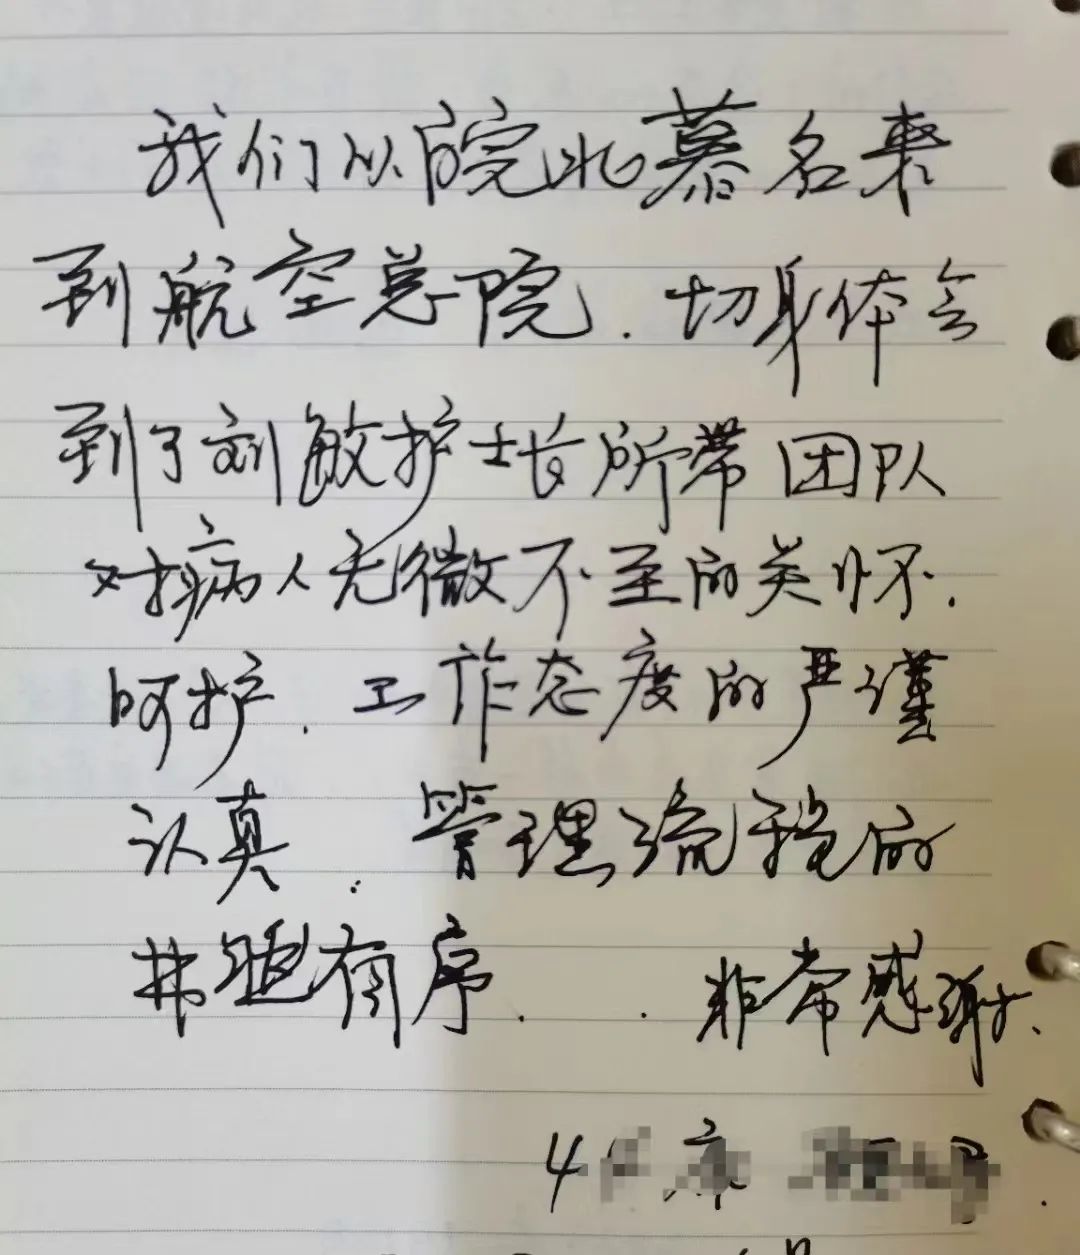 我们从皖北慕名来
到航空总院.切身体会
到了刘敏护士长所带团队
对病人无微不至的关怀.
呵护.工作态度的严谨
认真.管理流程的
井然有序..非常感谢.
4 床